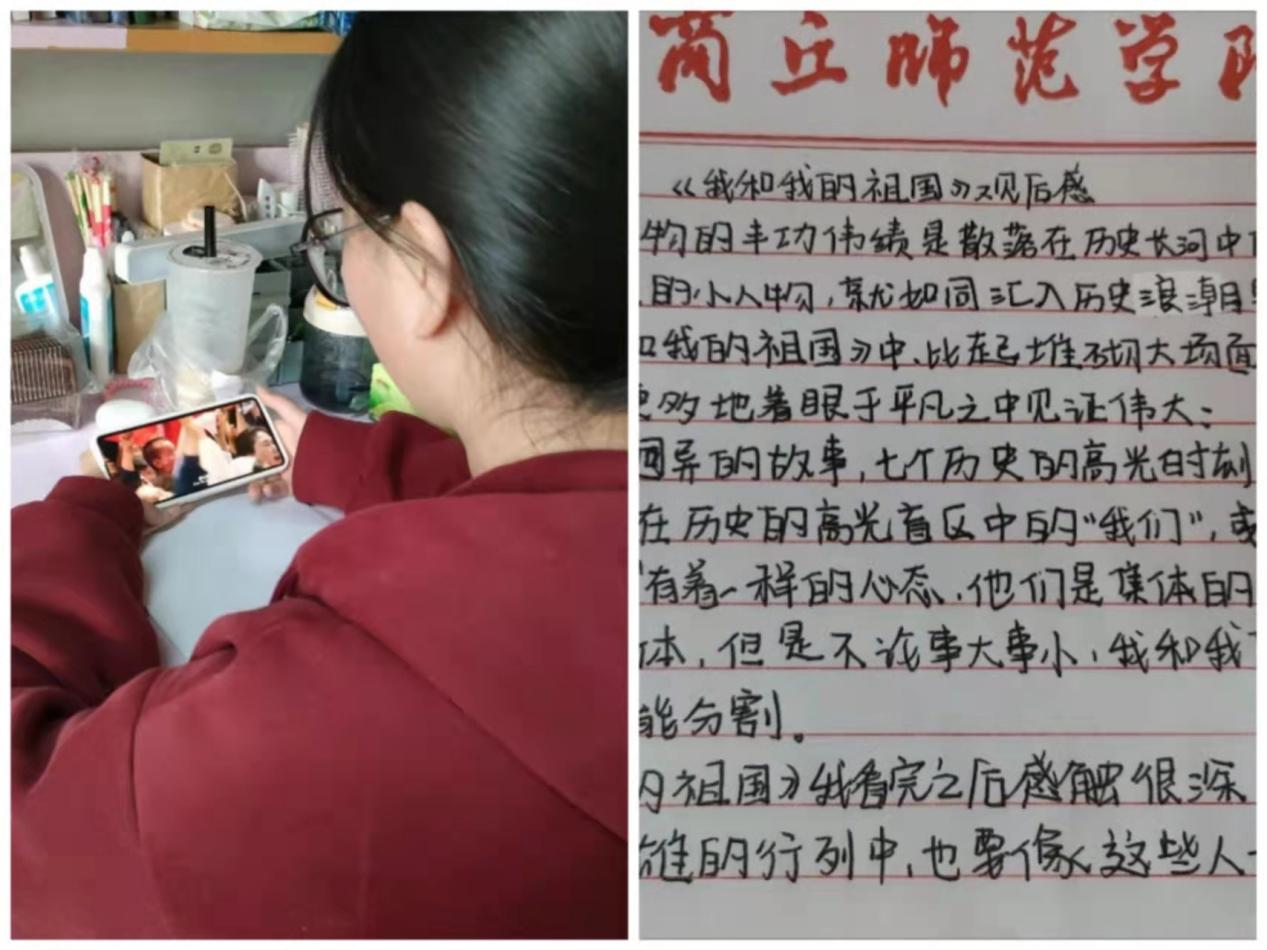 商丘师范学
《我和我的祖国》观后感
物的丰功伟绩是散落在历史长河中
的小人物，就如同汇入历史浪潮
我的祖国》中，比起堆砌大场面
多地着眼于平凡之中见证伟大：
迥异的故事，七个历史的高光时刻
在历史的高光盲区中的“我们”，或
有着一样的心态，他们是集体的
体，但是不论事大事小，我和我
能分割。
祖国》我看完之后感触很深
雄的行列中，也要像这些人